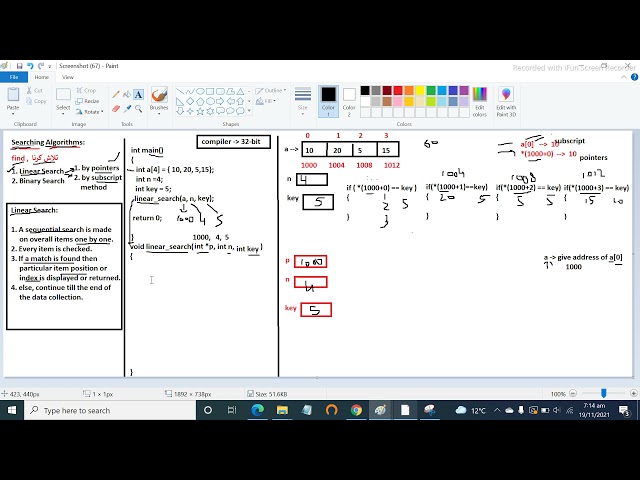 Screenshot (67) - Paint
Recorded with iFun Screen Recorder
File Home View
Paste Cut Copy
Clipboard
Select Crop Resize Rotate
Image
Tools
Brushes
Outline Fill
Shapes
Size
Color 1 Color 2
Colors
Edit colors
Edit with Paint 3D
Searching Algorithms:
find , تلاش کرنا
1. Linear Search
2. Binary Search
1. by pointers
2. by subscript method
Linear Search:
1. A sequential search is made
on overall items one by one.
2. Every item is checked.
3. If a match is found then
particular item position or
index is displayed or returned.
4. else, continue till the end of
the data collection.
compiler -> 32-bit
int main()
{
int a[4] = { 10, 20, 5,15};
int n =4;
int key = 5;
linear_search(a, n, key);
return 0;
1000 4 5
} 1000, 4, 5
void linear_search(int *p, int n, int key )
{
}
0 1 2 3
a -> 10 20 5 15
1000 1004 1008 1012
n 4
key 5
p 1000
n 4
key 5
a[0] --> 10 subscript
*(1000+0) --> 10 pointers
1004 1008 1012
if ( *(1000+0) == key ) if(*(1000+1)==key) if(*(1000+2) == key) if(*(1000+3) == key)
{ 1 5 { 20 5 { 5 5 { 15
} 2 } } }
3
a -> give address of a[0]
1000
423, 440px 1 × 1px 1892 × 738px Size: 51.6KB 100%
Type here to search
12°C
7:14 am
19/11/2021